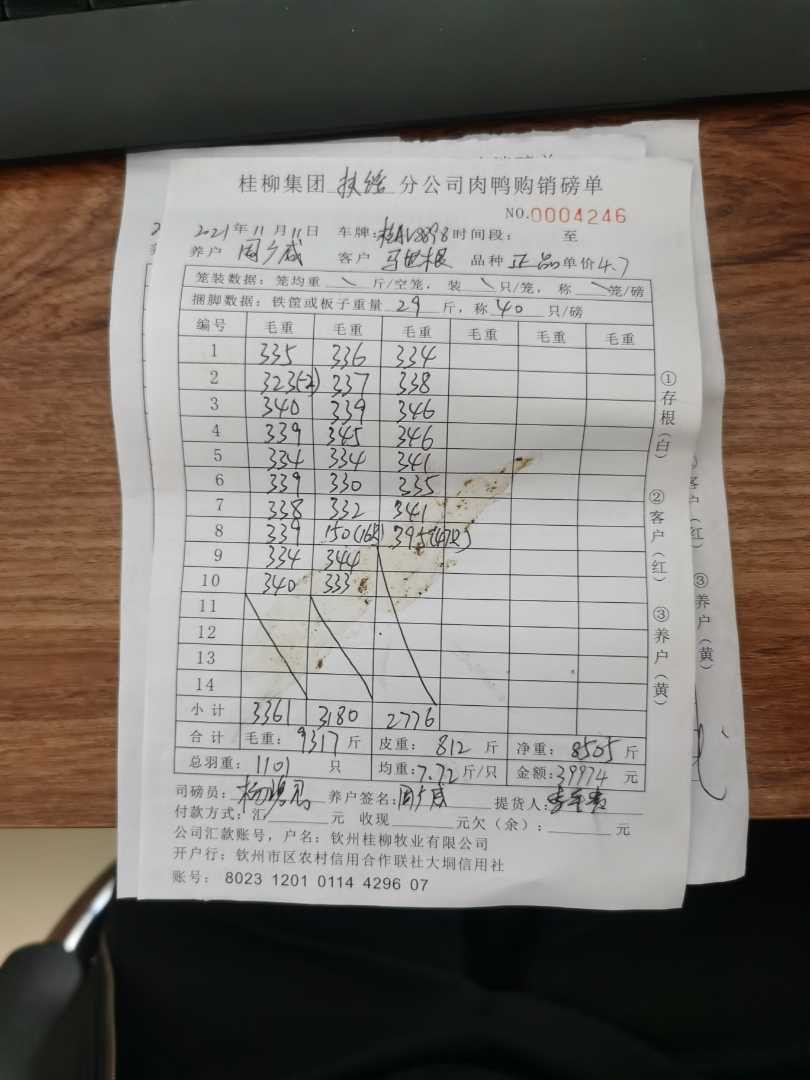 桂柳集团 扶绥 分公司肉鸭购销磅单
NO.0004246
2021年11月11日 车牌:桂AV8898 时间段: 至
养户 周广威 客户 马思根 品种 正品 单价4.7
笼装数据:笼均重 \ 斤/空笼, 装 \ 只/笼, 称 \ 笼/磅
捆脚数据:铁筐或板子重量 29 斤,称 40 只/磅
编号 毛重 毛重 毛重 毛重 毛重 毛重
1 335 336 334
2 323(-2) 337 338
3 340 339 346
4 339 345 346
5 334 334 341
6 339 330 335
7 338 332 341
8 339 150(16只) 395(47只)
9 334 344
10 340 333
11
12
13
14
小计 3361 3180 2776
合计 毛重: 9317 斤 皮重: 812 斤 净重: 8505 斤
总羽重: 1101 只 均重:7.72斤/只 金额:39974 元
司磅员: 养户签名:周广威 提货人:
付款方式:汇 元 收现 元欠(余): 元
公司汇款账号,户名:钦州桂柳牧业有限公司
开户行:钦州市区农村信用合作联社大垌信用社
账号: 8023 1201 0114 4296 07
①存根(白)
②客户(红)
③养户(黄)
③养户(黄)